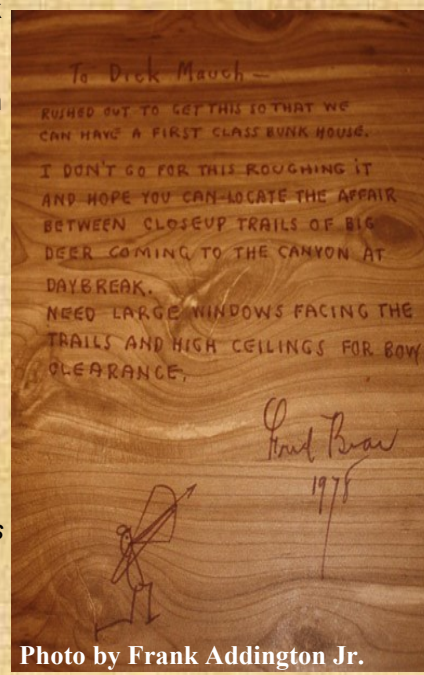 To Dick Mauch —
RUSHED OUT TO GET THIS SO THAT WE
CAN HAVE A FIRST CLASS BUNK HOUSE.
I DON'T GO FOR THIS ROUGHING IT
AND HOPE YOU CAN-LOCATE THE AFFAIR
BETWEEN CLOSEUP TRAILS OF BIG
DEER COMING TO THE CANYON AT
DAYBREAK.
NEED LARGE WINDOWS FACING THE
TRAILS AND HIGH CEILINGS FOR BOW
CLEARANCE.
Fred Bear
1978
Photo by Frank Addington Jr.